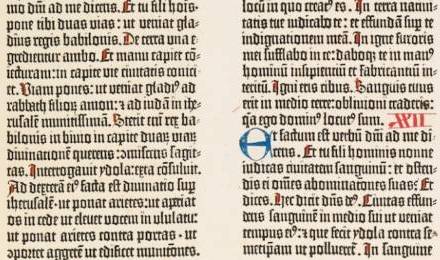 mo dñi ad me dicens. Et tu fili hoĩs·
pone tibi duas vias: ut veniat gla-
dius regis babilonis. De terra una e-
gredientur ambo. Et manu capiet cõ-
iecturam: in capite vie civitatis coniici-
et. Viam pones: ut veniat gladi⁹ ad
rabbath filioꝝ amon: ⁊ ad iudã in ihe-
rusalẽ munitissimã. Stetit eim̃ rex ba-
bilonis in bivio in capite duaꝝ viaꝝ
divinationẽ querens: ꝯmiscens sagit-
tas. Interrogavit ydola: exta cõsuluit.
Ad dexterã ei⁹ facta est divinatio sup
iherusalẽ· ut ponat arietes: ut aperiat
os in cede· ut elevet vocem in ululatu:
ut ponat arietes contra portas · ut
ꝯportet aggerẽ ut edificet munitiones.
locũ in quo creat⁹ es. In terra nativi-
tatis tue iudicabo te: et effundã sup te
indignationem meã. In igne furoris
mei sufflabo in te: daboqꝫ te in man⁹
hominũ insipientiũ et fabricantiũ in-
teritũ. Igni eris cibus. Sanguis tuus
erit in medio terre: oblivioni traderis:
q̃a ego domin⁹ locut⁹ sum. XXII
Et factum est verbũ dñi ad me di-
cens. Et tu fili hominis nonne
iudicas civitatem sanguinũ: et osten-
dis ei om̃es abominationes suas? Et
dices. Hec dicit dñs de⁹. Civitas effun-
dens sanguinẽ in medio sui ut veniat
tempus ei⁹: ⁊ que fecit ydola contra se-
metipam ut pollueret̃. In sanguine